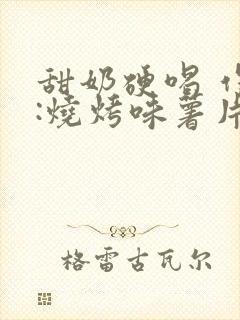 甜奶硬唱
:燒烤味薯片
格雷古瓦尔